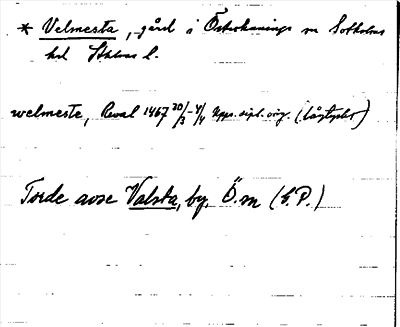 * Velmesta, gård i Österhaninge sn Sotholms
hd Sthlms l.
welmeste, Reval 1467 30/3-4/4 Upps. dipl. orig. (lågtyska)
Torde avse Valsta, by, Ö. sn (G.P.)